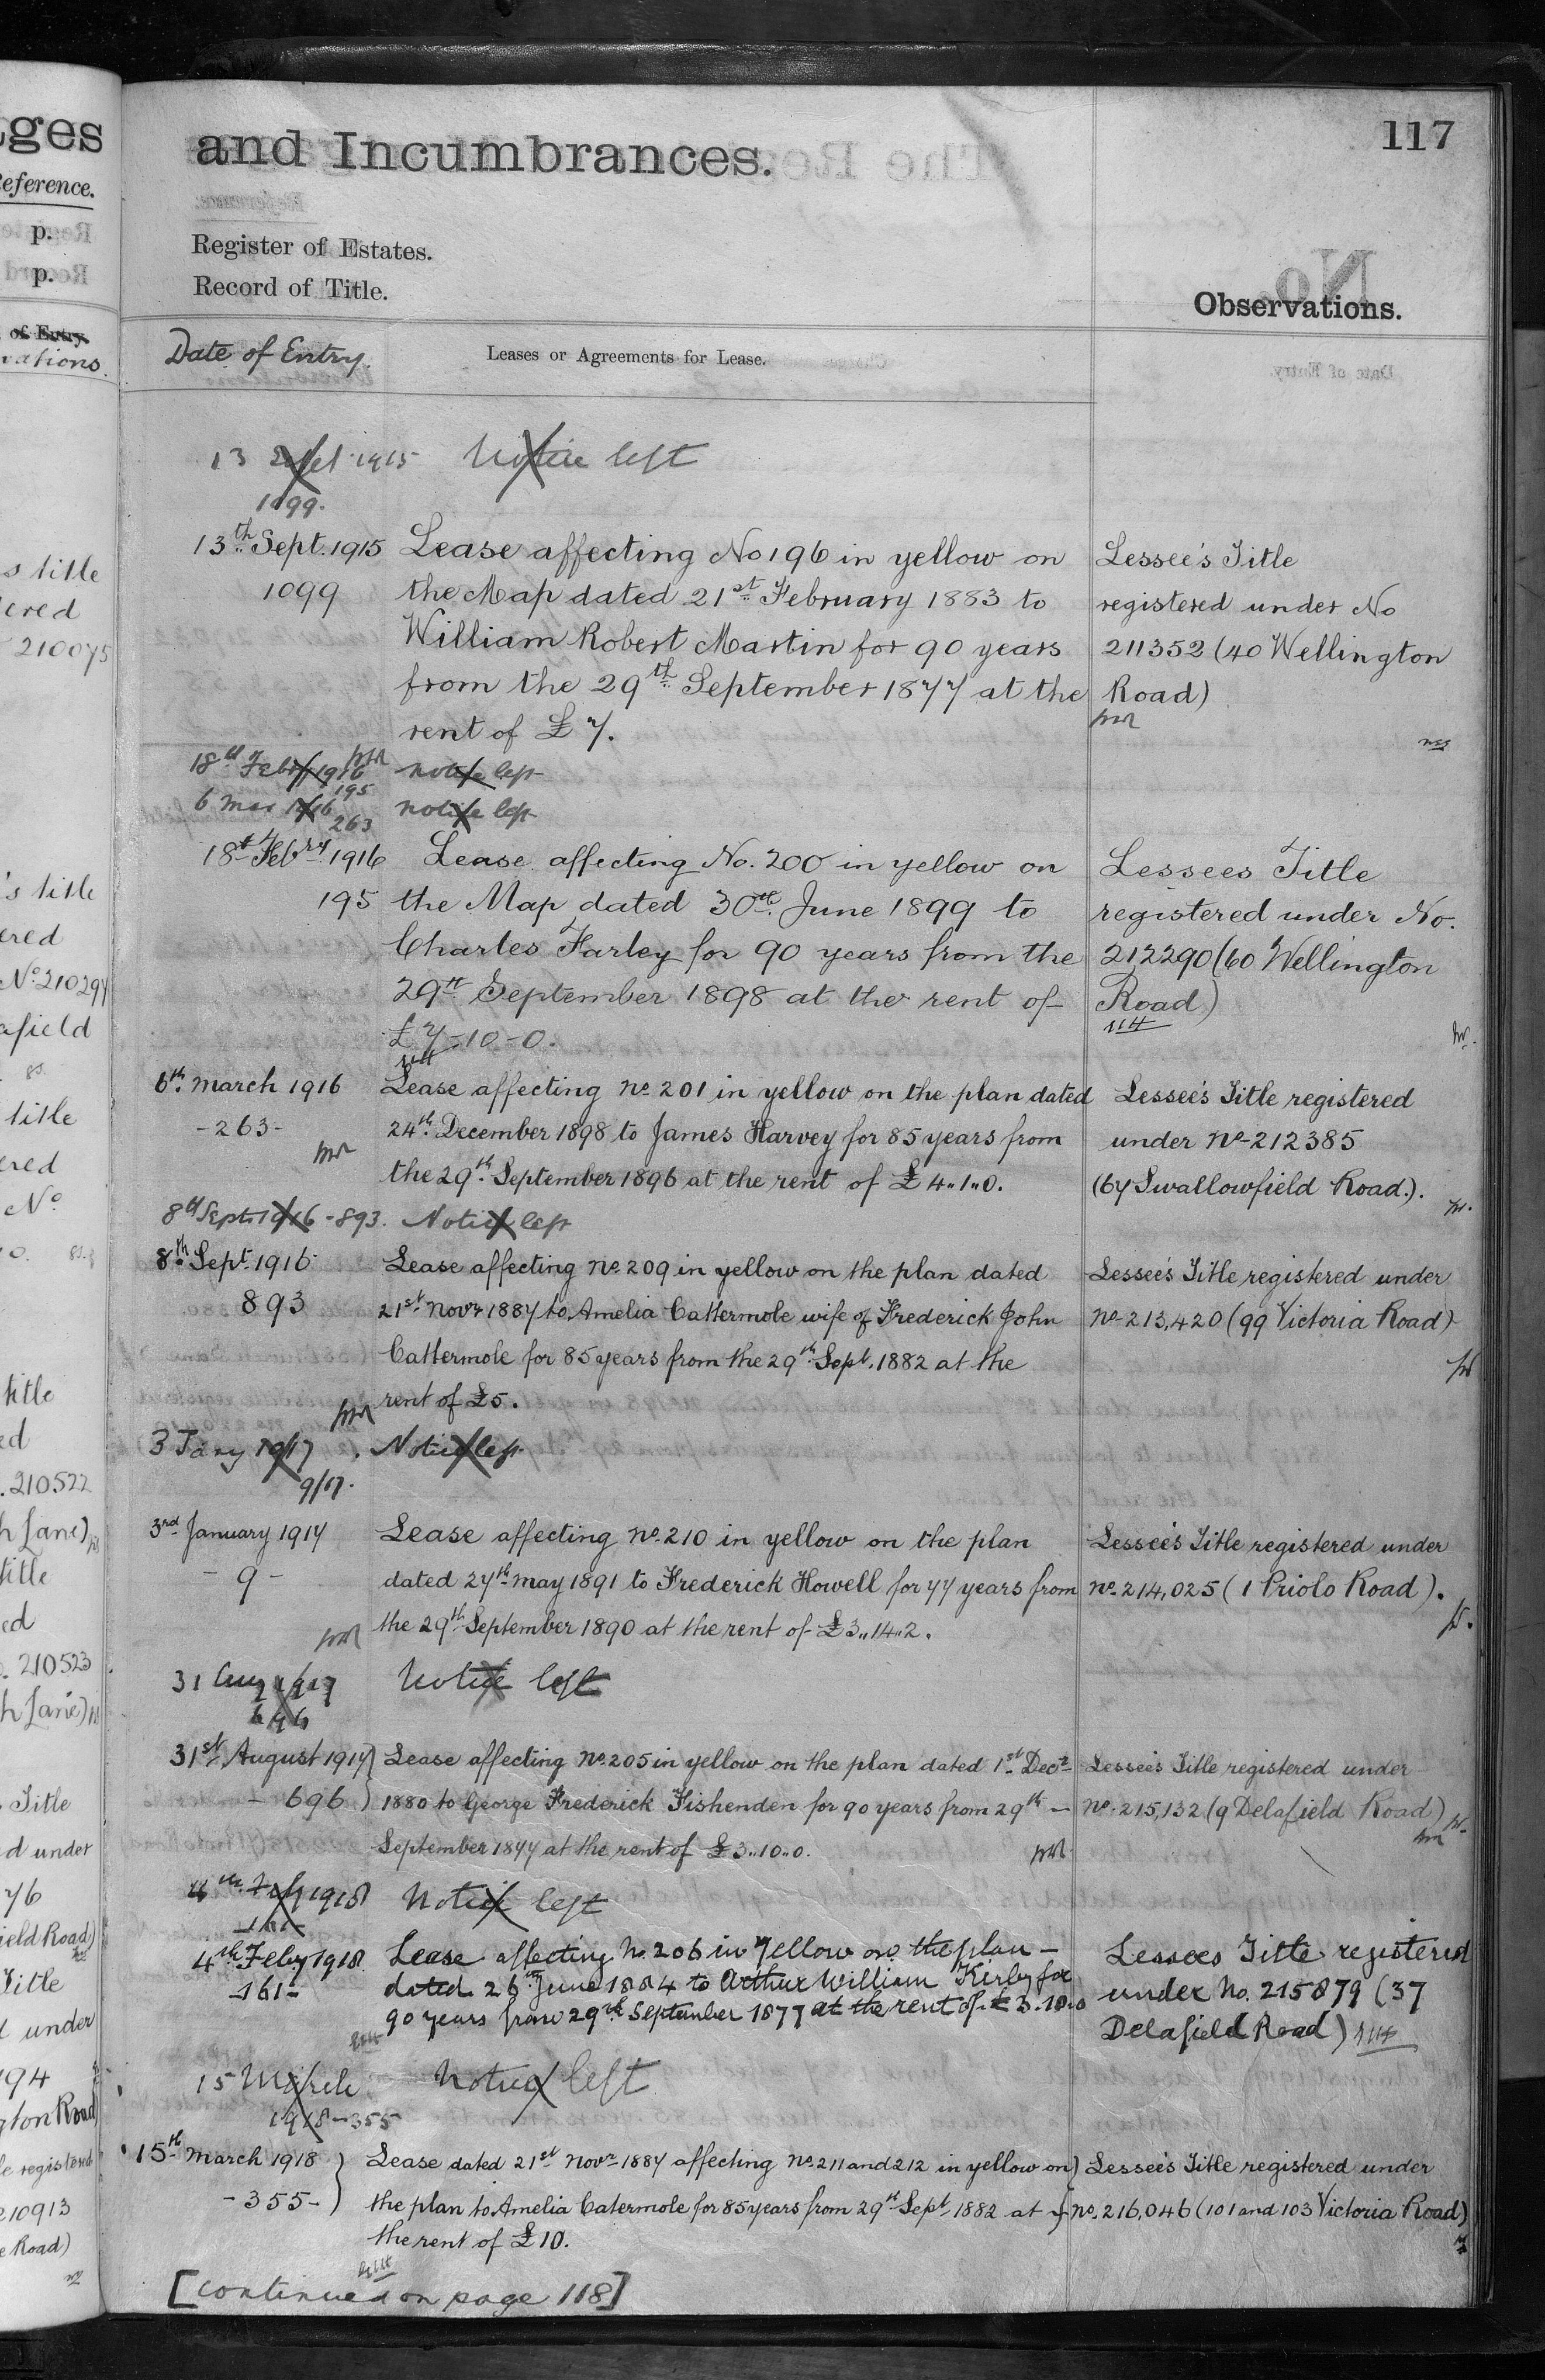 tges
Reference.
p.
p.
of Entry.
vations.
s title
ered
210075
's title
ered
No 210294
afield
title
ered
No
title
ed
.210522
h Lane)
title
ed
. 210523
h Lane)
Title
d under
76
ield Road)
Title
d under
194
gton Road
e registered
210913
e Road)
117
and Incumbrances.
Register of Estates.
Record of Title.
Observations.
Date of Entry. Leases or Agreements for Lease.
13 Sept 1915 Notice left
1099.
13th Sept. 1915 Lease affecting No 196 in yellow on Lessee's Title
1099 the Map dated 21st February 1883 to registered under No
William Robert Martin for 90 years 211352 (40 Wellington
from the 29th September 1877 at the Road)
rent of £7.
18th Feby 1916 notice left
195
6 Mar 1916 notice left
263
18th Febry 1916 Lease affecting No. 200 in yellow on Lessees Title
195 the Map dated 30th June 1899 to registered under No.
Charles Farley for 90 years from the 212290 (60 Wellington
29th September 1898 at the rent of Road)
£7-10-0.
6th March 1916 Lease affecting No. 201 in yellow on the plan dated Lessee's Title registered
-263- 24th December 1898 to James Harvey for 85 years from under No. 212385
the 29th September 1896 at the rent of £4..1..0. (67 Swallowfield Road.).
8th Sept 1916 - 893. Notice left
8th Sept 1916 Lease affecting No. 209 in yellow on the plan dated Lessee's Title registered under
893 21st Novr 1887 to Amelia Cattermole wife of Frederick John No. 213,420 (99 Victoria Road)
Cattermole for 85 years from the 29th Sept. 1882 at the
rent of £5.
3 Jany 1917 Notice left
9/17.
3rd January 1917 Lease affecting No. 210 in yellow on the plan Lessee's Title registered under
- 9 - dated 27th May 1891 to Frederick Howell for 77 years from No. 214,025 (1 Priolo Road).
the 29th September 1890 at the rent of £3..14..2.
31 Aug 1917 Notice left
696
31st August 1917 Lease affecting No. 205 in yellow on the plan dated 1st Decr Lessee's Title registered under
- 696 1880 to George Frederick Fishenden for 90 years from 29th - No. 215,132 (9 Delafield Road)
September 1877 at the rent of £3..10..0.
4th Feby 1918 Notice left
161
4th Feby 1918 Lease affecting No. 206 in Yellow on the plan - Lessees Title registered
-161- dated 26th June 1884 to Arthur William Kirby for under No. 215879 (37
90 years from 29th September 1877 at the rent of £3.10.0 Delafield Road)
15 March Notice left
1918-355
15th March 1918 Lease dated 21st Novr 1887 affecting No. 211 and 212 in yellow on Lessee's Title registered under
-355- the plan to Amelia Catermole for 85 years from 29th Sept. 1882 at No. 216,046 (101 and 103 Victoria Road)
the rent of £10.
[continued on page 118]